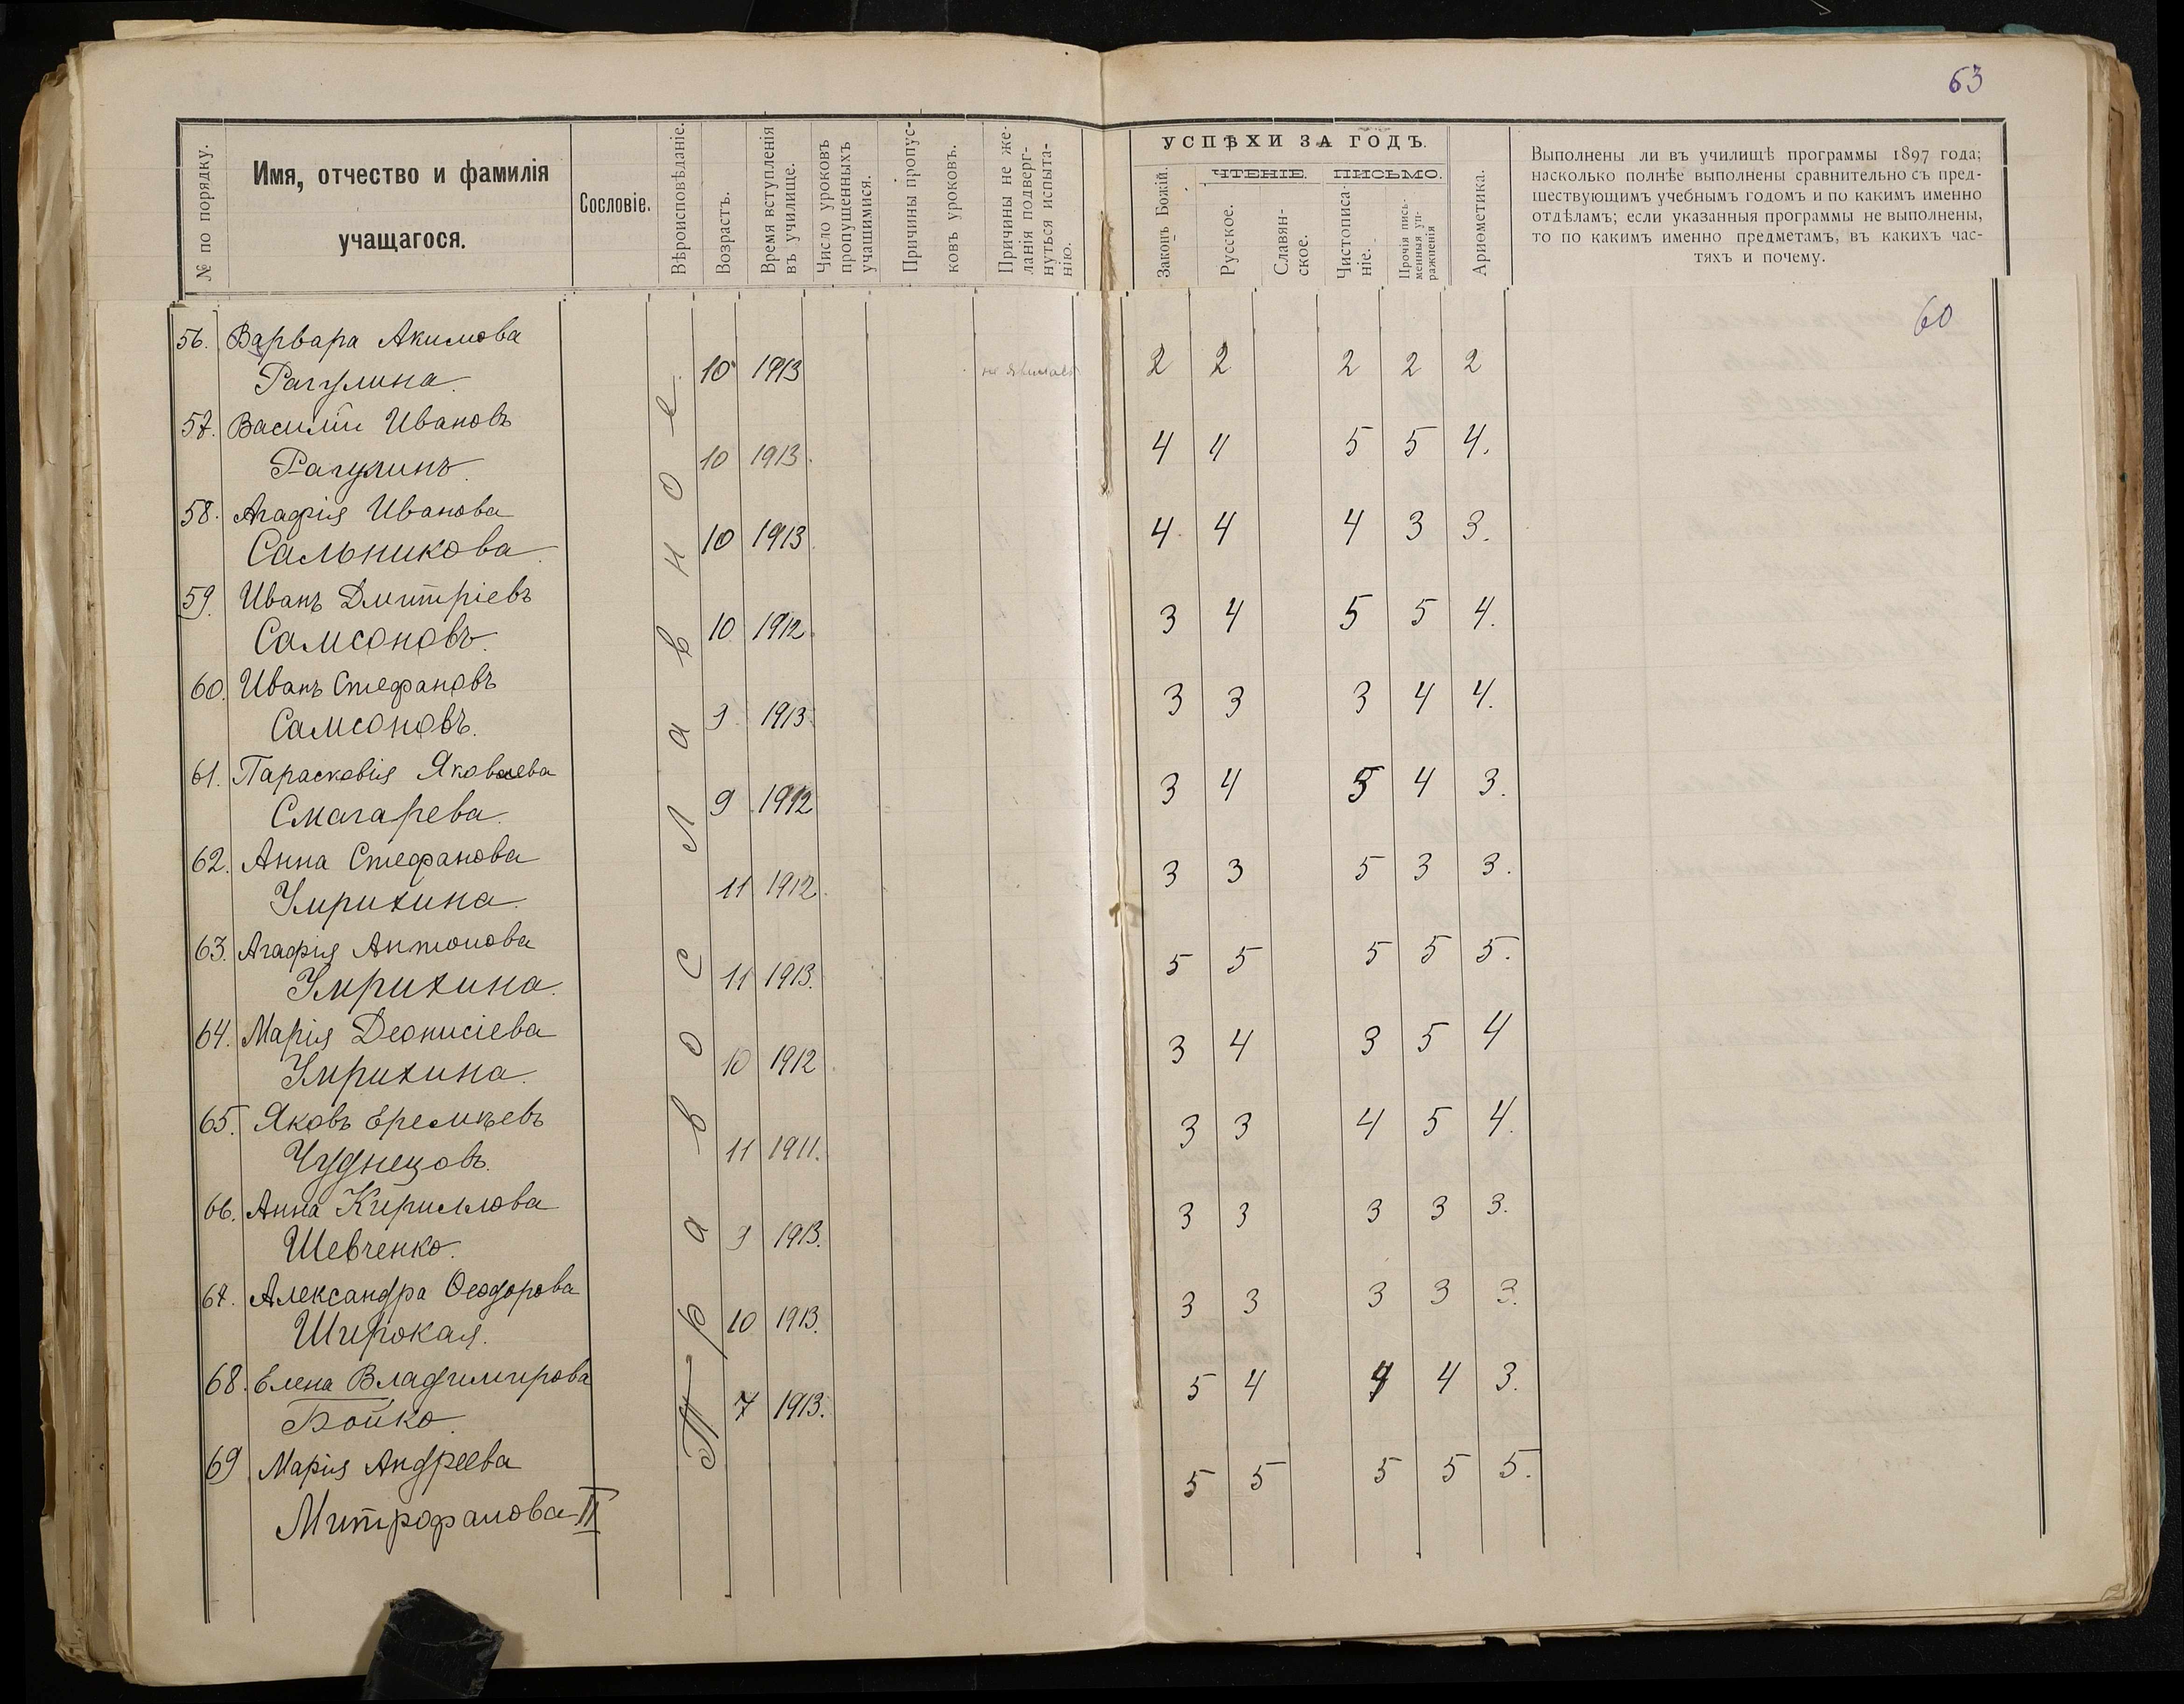 63
№ по порядку.
Имя, отчество и фамилія
учащагося.
Сословіе.
Вѣроисповѣданіе.
Возрастъ.
Время вступленія
въ училище.
Число уроковъ
пропущенныхъ
учащимися.
Причины пропус-
ковъ уроковъ.
Причины не же-
ланія подверг-
нуться испыта-
нію.
УСПѢХИ ЗА ГОДЪ.
Законъ Божій.
ЧТЕНІЕ.
Русское.
Славян-
ское.
ПИСЬМО.
Чистописа-
ніе.
Прочія пись-
менныя уп-
ражненія
Ариѳметика.
Выполнены ли въ училищѣ программы 1897 года;
насколько полнѣе выполнены сравнительно съ пред-
шествующимъ учебнымъ годомъ и по какимъ именно
отдѣламъ; если указанныя программы не выполнены,
то по какимъ именно предметамъ, въ какихъ час-
тяхъ и почему.
60
Православное
56. Варвара Акимова
Рагулина. 10 1913 2 2 2 2 2
57. Василій Ивановъ
Рагулинъ. 10 1913. 4 4 5 5 4.
58. Агафія Иванова
Сальникова. 10 1913. 4 4 4 3 3.
59. Иванъ Дмитріевъ
Самсоновъ. 10 1912. 3 4 5 5 4.
60. Иванъ Стефановъ
Самсоновъ. 9 1913. 3 3 3 4 4.
61. Парасковія Яковлева
Смагарева. 9 1912 3 4 5 4 3.
62. Анна Стефанова
Умрихина. 11 1912. 3 3 5 3 3.
63. Агафія Антонова
Умрихина. 11 1913. 5 5 5 5 5.
64. Марія Деонисіева
Умрихина. 10 1912 3 4 3 5 4
65. Яковъ Еремѣевъ
Чуднецовъ. 11 1911. 3 3 4 5 4.
66. Анна Кириллова
Шевченко. 9 1913. 3 3 3 3 3.
67. Александра Ѳеодорова
Широкая. 10 1913. 3 3 3 3 3.
68. Елена Владимирова
Бойко. 7 1913. 5 4 4 4 3.
69. Марія Андреева
Митрофанова II 5 5 5 5 5.